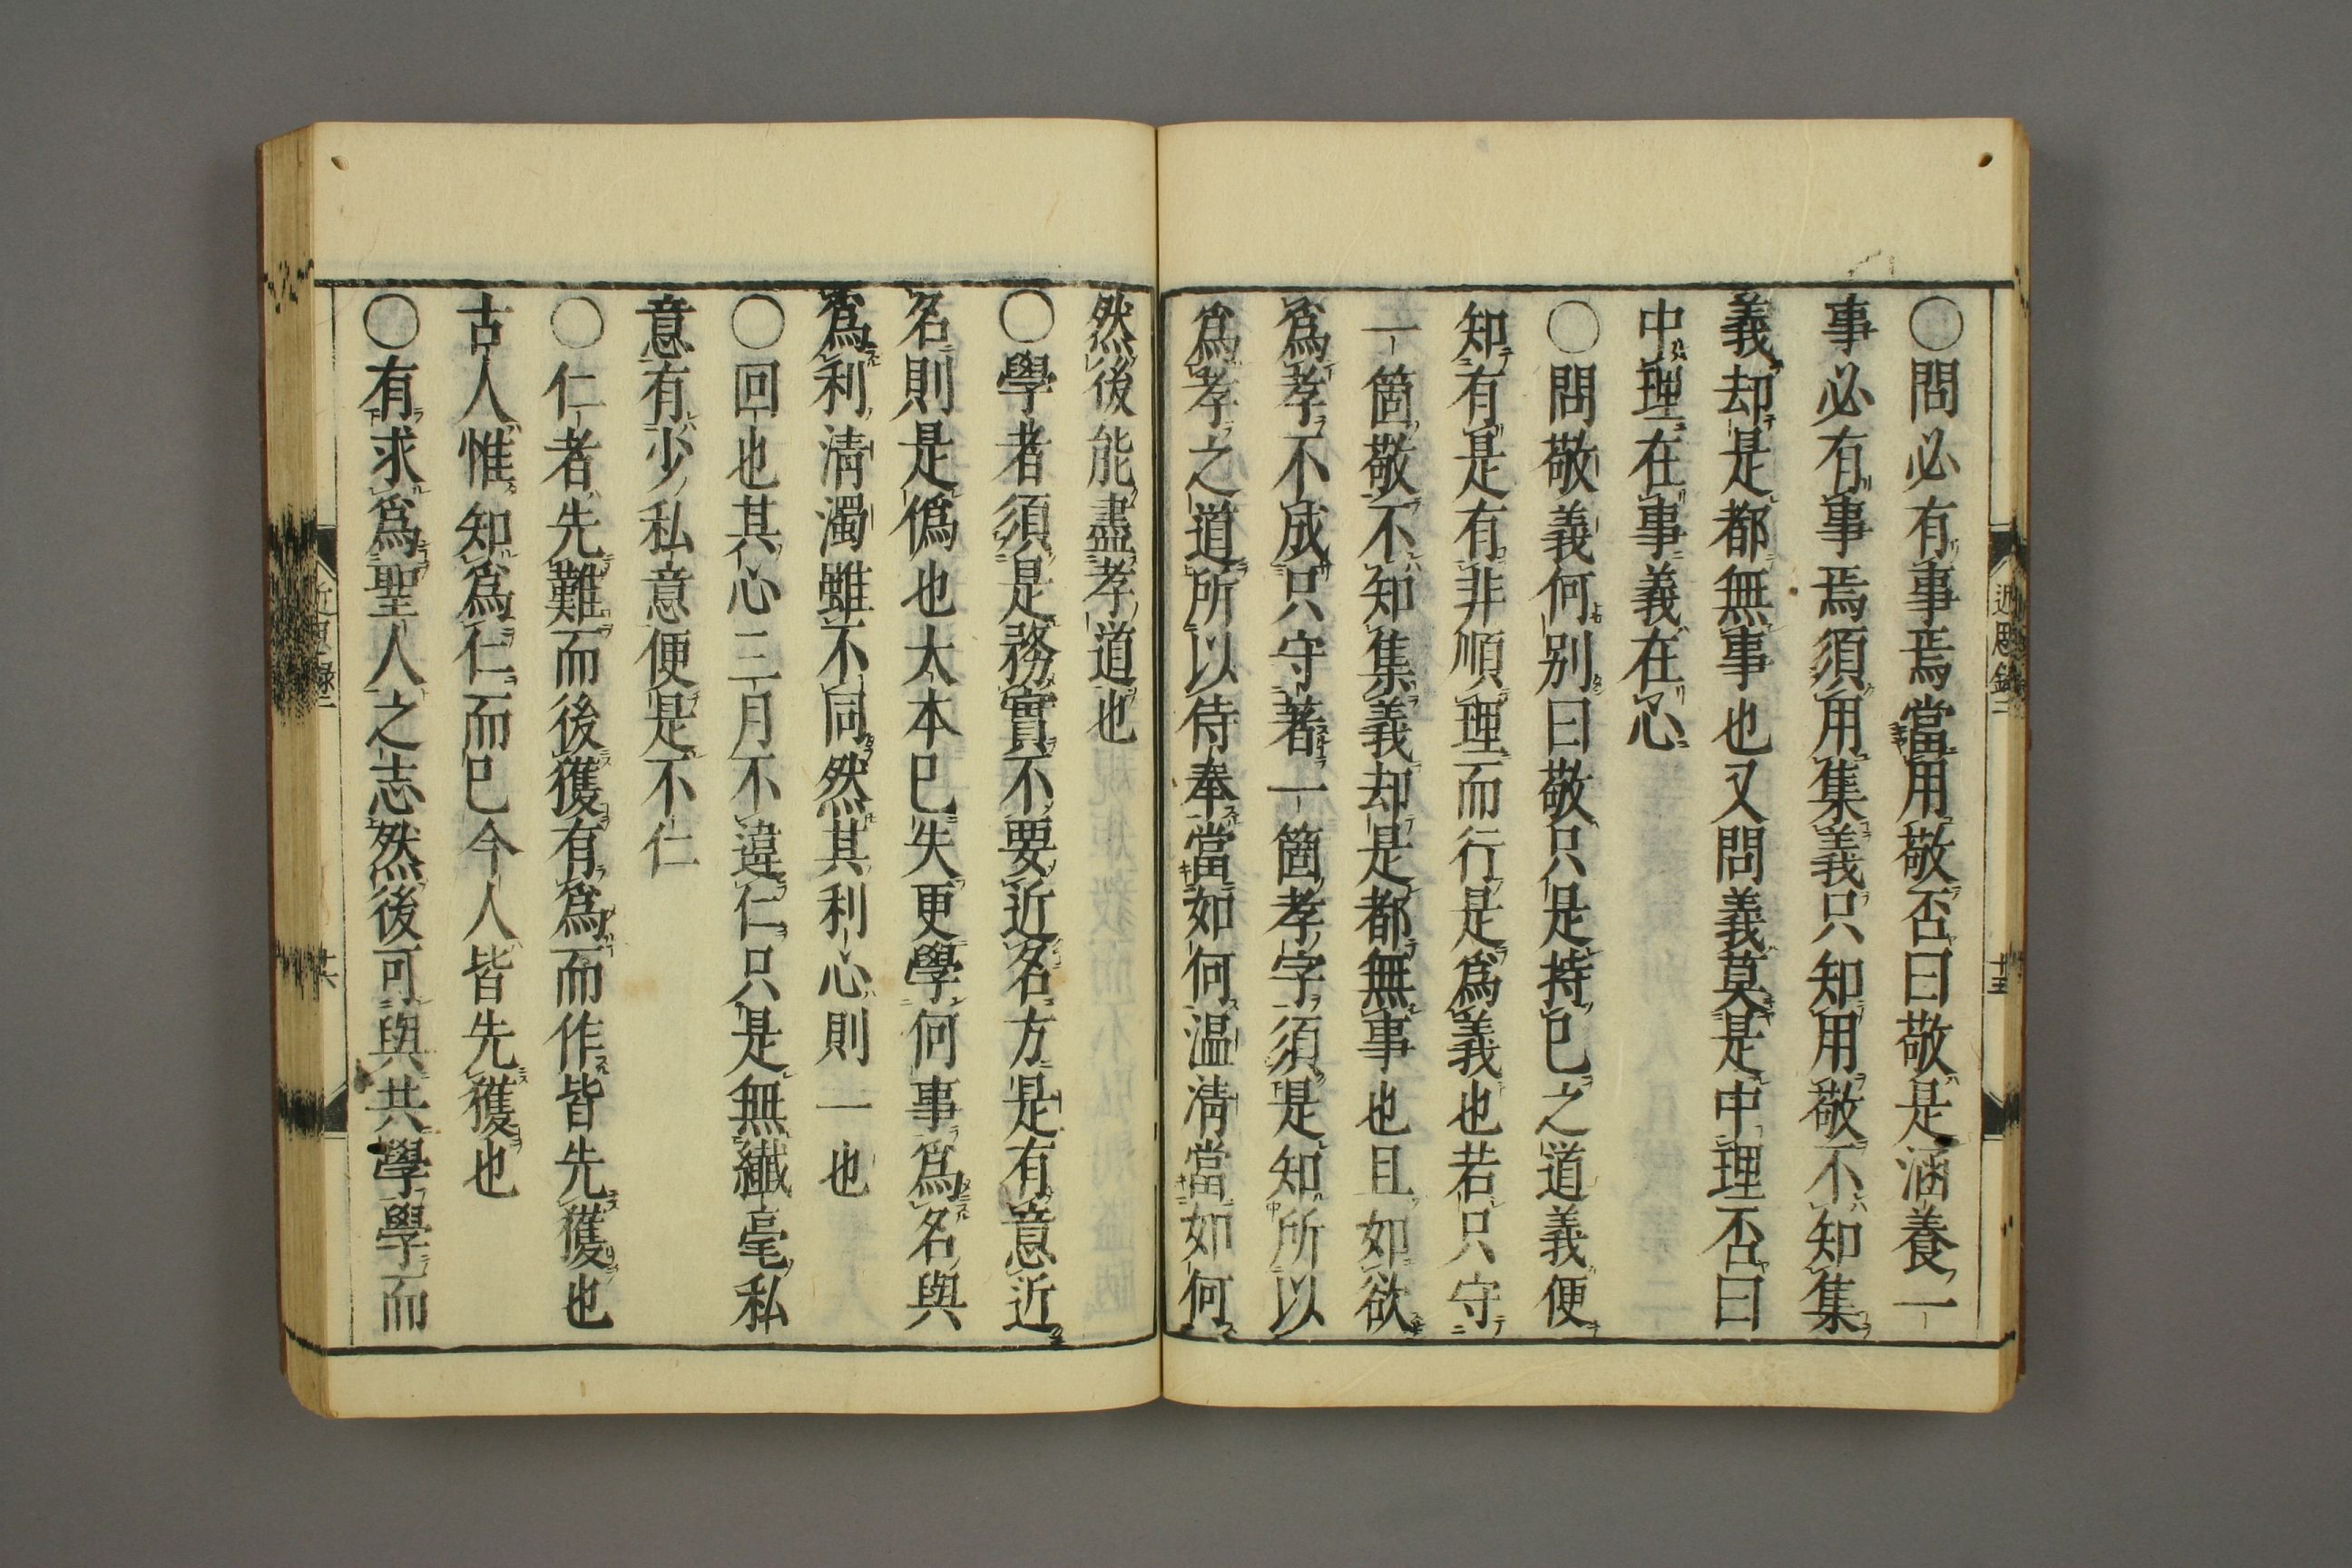 〇問必有事焉當用敬否曰敬是涵養一
事必有事焉須用集義只知用敬不知集
義却是都無事也又問義莫是中理否曰
中理在事義在心
〇問敬義何別曰敬只是持已之道義便
知有是有非順理而行是爲義也若只守
一箇敬不知集義却是都無事也且如欲
爲孝不成只守著一箇孝字須是知所以
爲孝之道所以侍奉當如何温凊當如何
然後能盡孝道也
〇學者須是務實不要近名方是有意近
名則是僞也大本已失更學何事爲名與
爲利清濁雖不同然其利心則一也
〇回也其心三月不違仁只是無纖毫私
意有少私意便是不仁
〇仁者先難而後獲有爲而作皆先獲也
古人惟知爲仁而已今人皆先獲也
〇有求爲聖人之志然後可與共學學而
近思錄二
十五
近思録二
十六